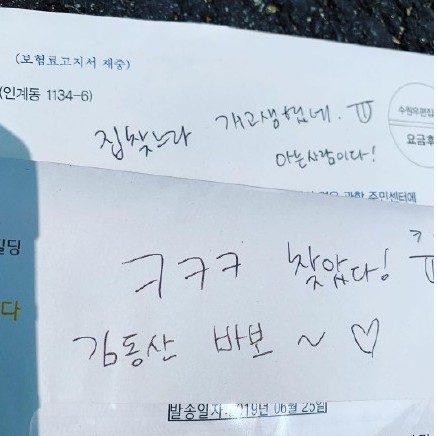 (보험료고지서 재중)
(인계동 1134-6)
수원우편집
요금후
집찾느라 개고생했네. ㅠ
아는사람이다!
관할 주민센터에
빌딩
ㅋㅋㅋ 찾았다! ㅠ
다
김동산 바보 ~ ♡
발송일자: 2019년 06월 25일